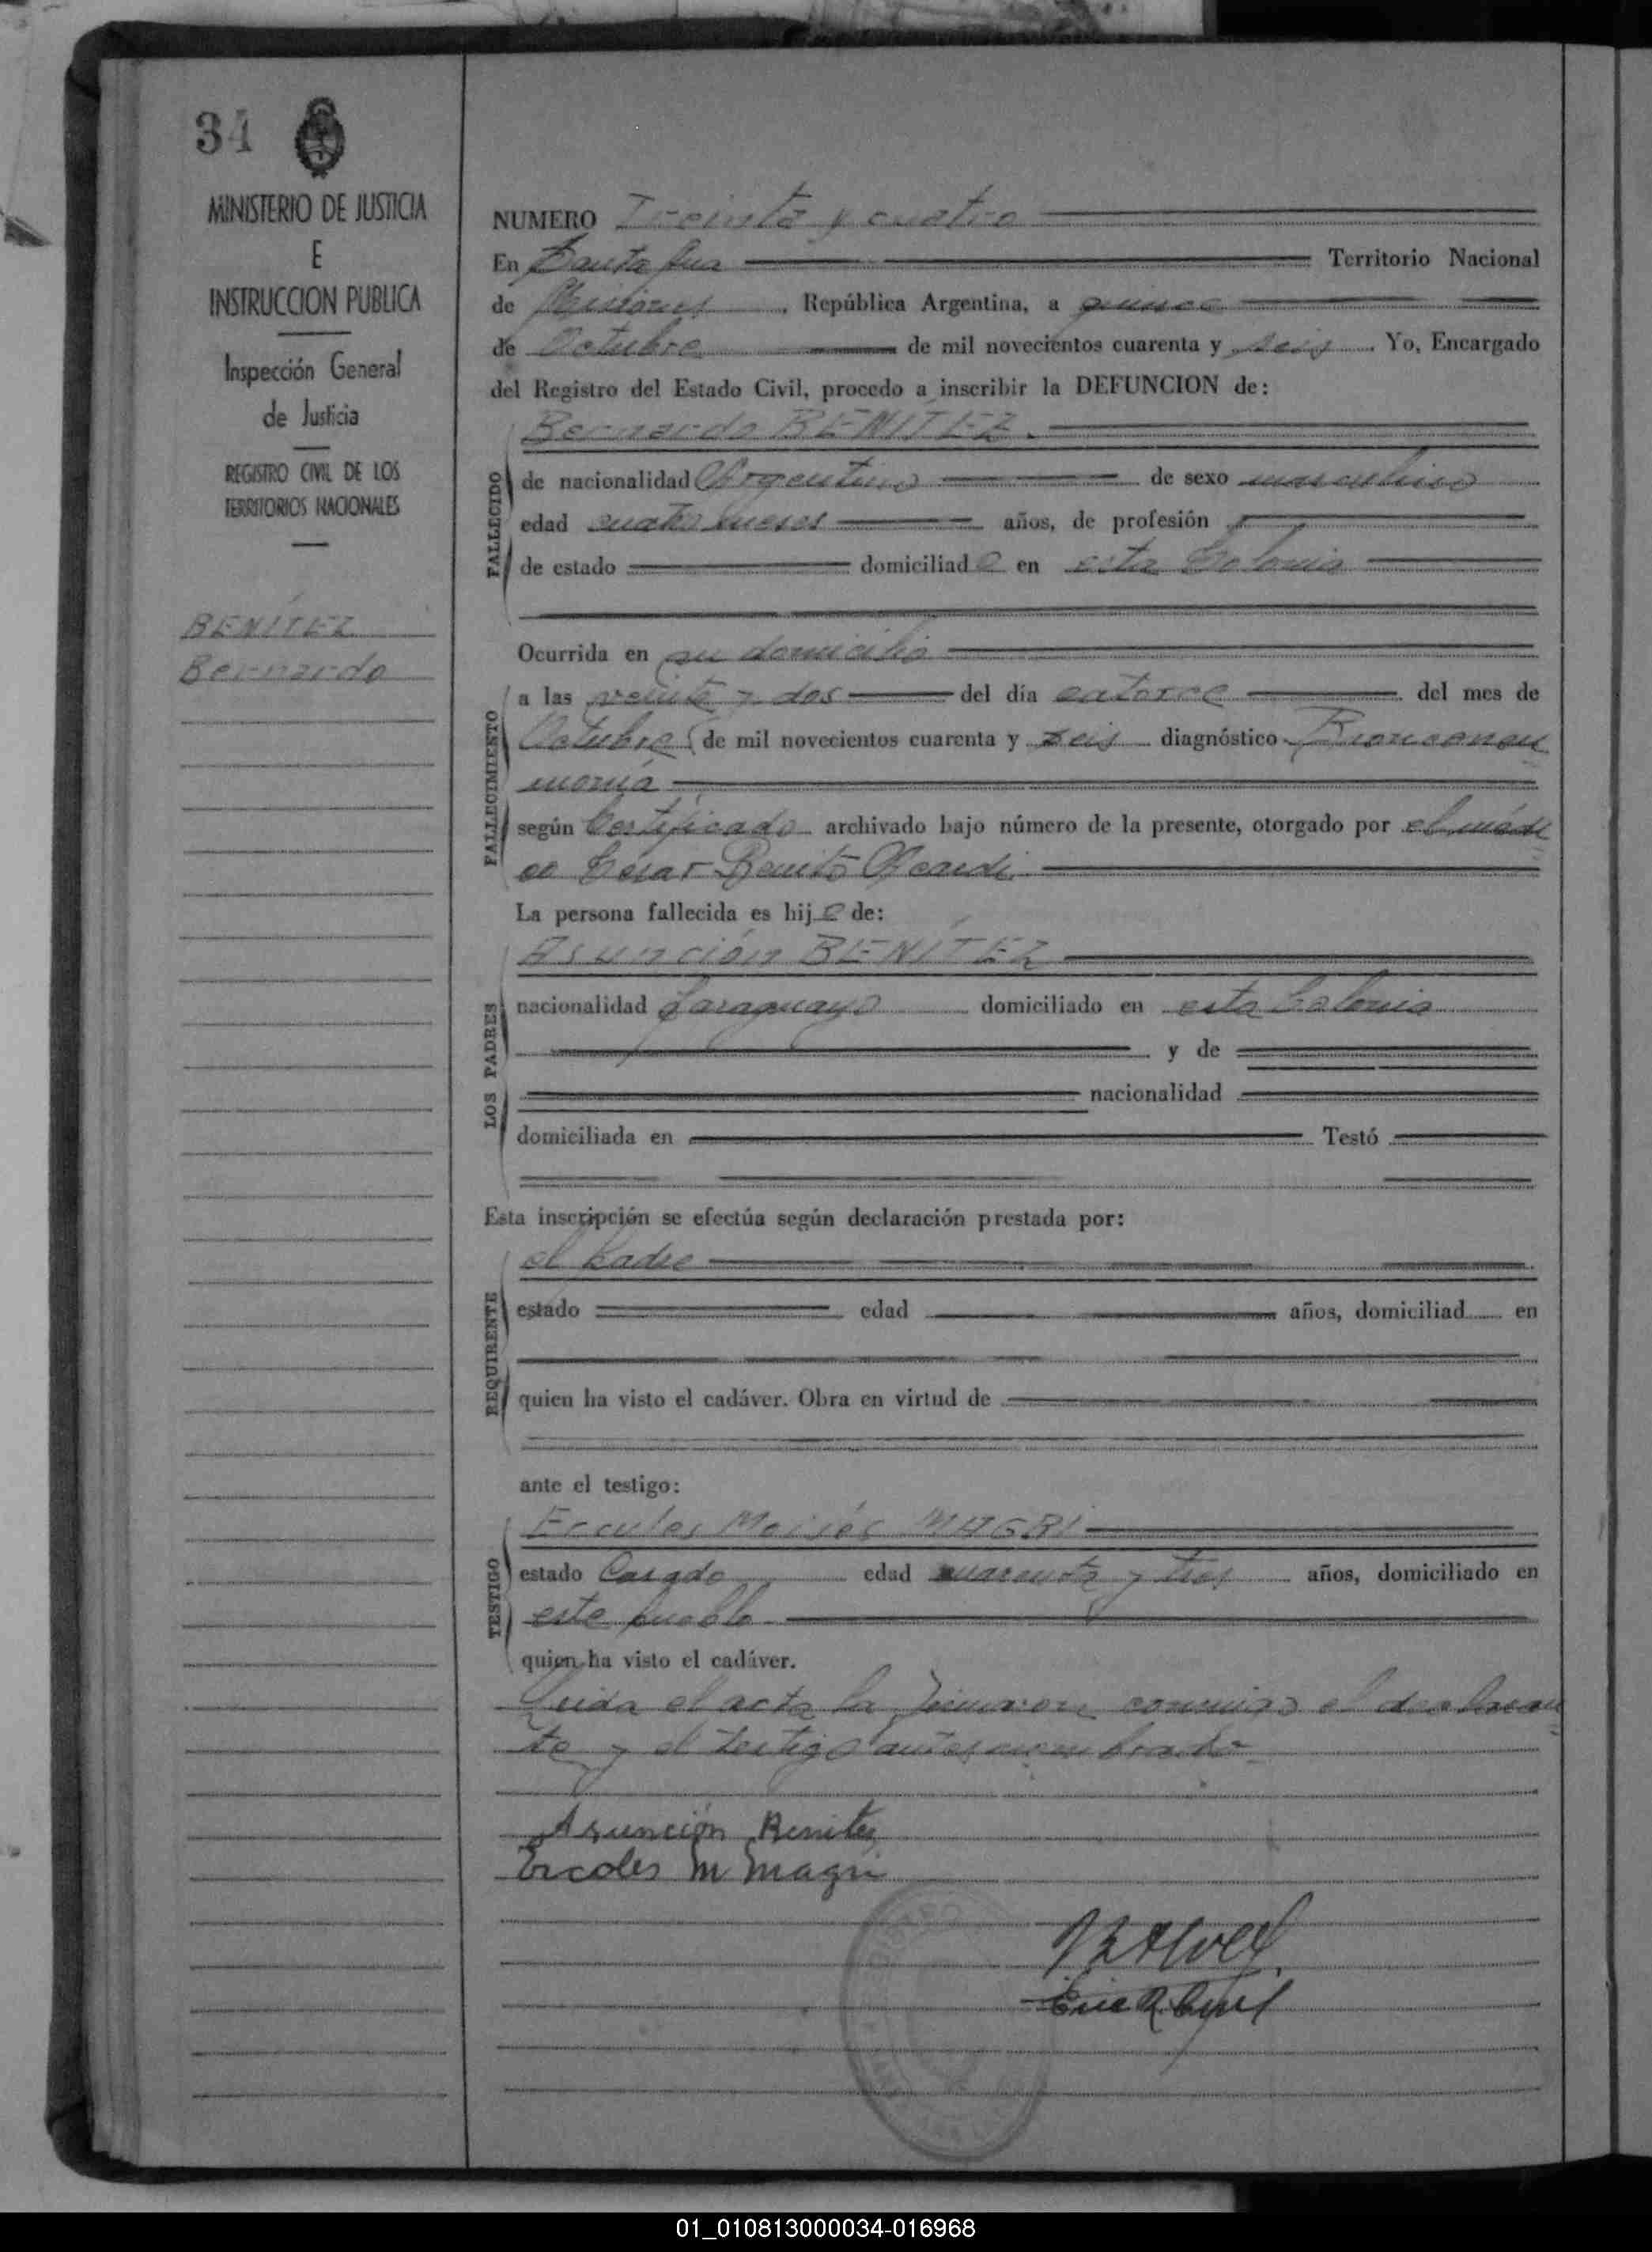 34
MINISTERIO DE JUSTICIA
E
INSTRUCCION PUBLICA
Inspección General
de Justicia
REGISTRO CIVIL DE LOS
TERRITORIOS NACIONALES
BENÍTEZ
Bernardo
NUMERO Treinta y cuatro
En Santa Ana Territorio Nacional
de Misiones, República Argentina, a quince
de Octubre de mil novecientos cuarenta y seis. Yo, Encargado
del Registro del Estado Civil, procedo a inscribir la DEFUNCION de:
Bernardo BENÍTEZ.
FALLECIDO
de nacionalidad Argentino de sexo masculino
edad cuatro meses años, de profesión
de estado domiciliado en esta Colonia
Ocurrida en su domicilio
FALLECIMIENTO
a las veinte y dos del día catorce del mes de
Octubre de mil novecientos cuarenta y seis diagnóstico Bronconeu
monía
según Certificado archivado bajo número de la presente, otorgado por el médi
co César Benito
La persona fallecida es hijo de:
LOS PADRES
Asunción BENÍTEZ
nacionalidad Paraguayo domiciliado en esta Colonia
y de
nacionalidad
domiciliada en Testó
Esta inscripción se efectúa según declaración prestada por:
REQUIRENTE
el padre
estado edad años, domiciliad en
quien ha visto el cadáver. Obra en virtud de
ante el testigo:
TESTIGO
Ercules Moisés MAGRI
estado Casado edad cuarenta y tres años, domiciliado en
este pueblo
quien ha visto el cadáver.
Leida el acta la firmaron conmigo el declaran
te y el testigo antes nombrado
Asunción Benitez
Ercoles M Magri
01_010813000034-016968